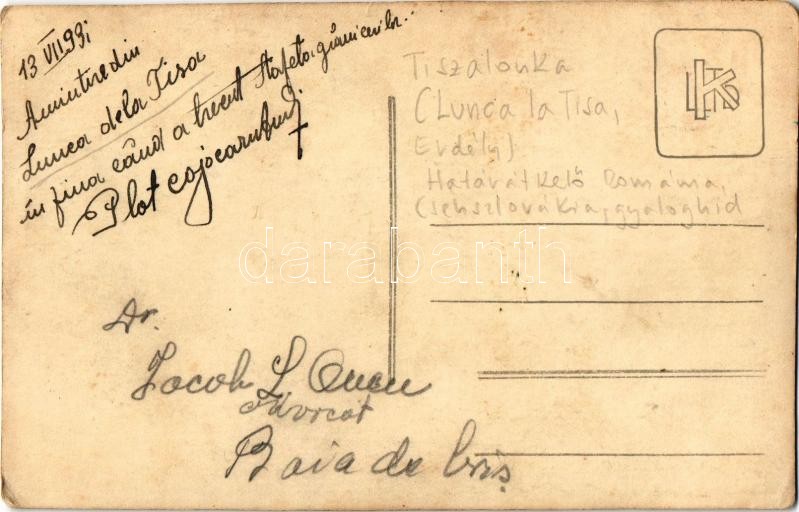 13 VII 931
Amintire din
Lunca dela Tisa
în ziua când a trecut Ștafeta grănicerilor.
Plot cojocarului
Tiszalonka
(Lunca la Tisa,
Erdély)
Határátkelő Románia,
Csehszlovákia, gyaloghíd
darabanth
Dr.
Iacob L
Advocat
Baia de Criș